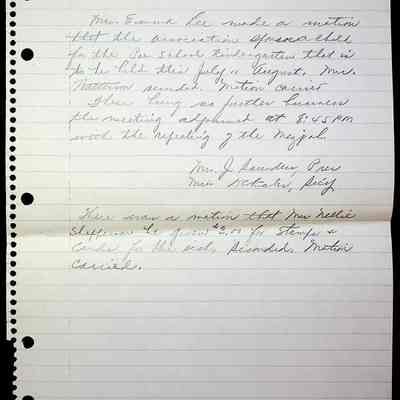 Mrs. Emma Lee made a motion
that the association sponsor a child
for the Pre School Kindergarten that is
to be held this July or August. Mrs.
seconded. Motion carried
There being no further business
the meeting adjourned at 8:45 PM
with the repeating of the Mizpah.
Mrs. J. Saunders, Pres
Secy
There was a motion that Mrs Nettie
be given $2.00 for stamps &
Cards for the sick. Seconded. Motion
carried.